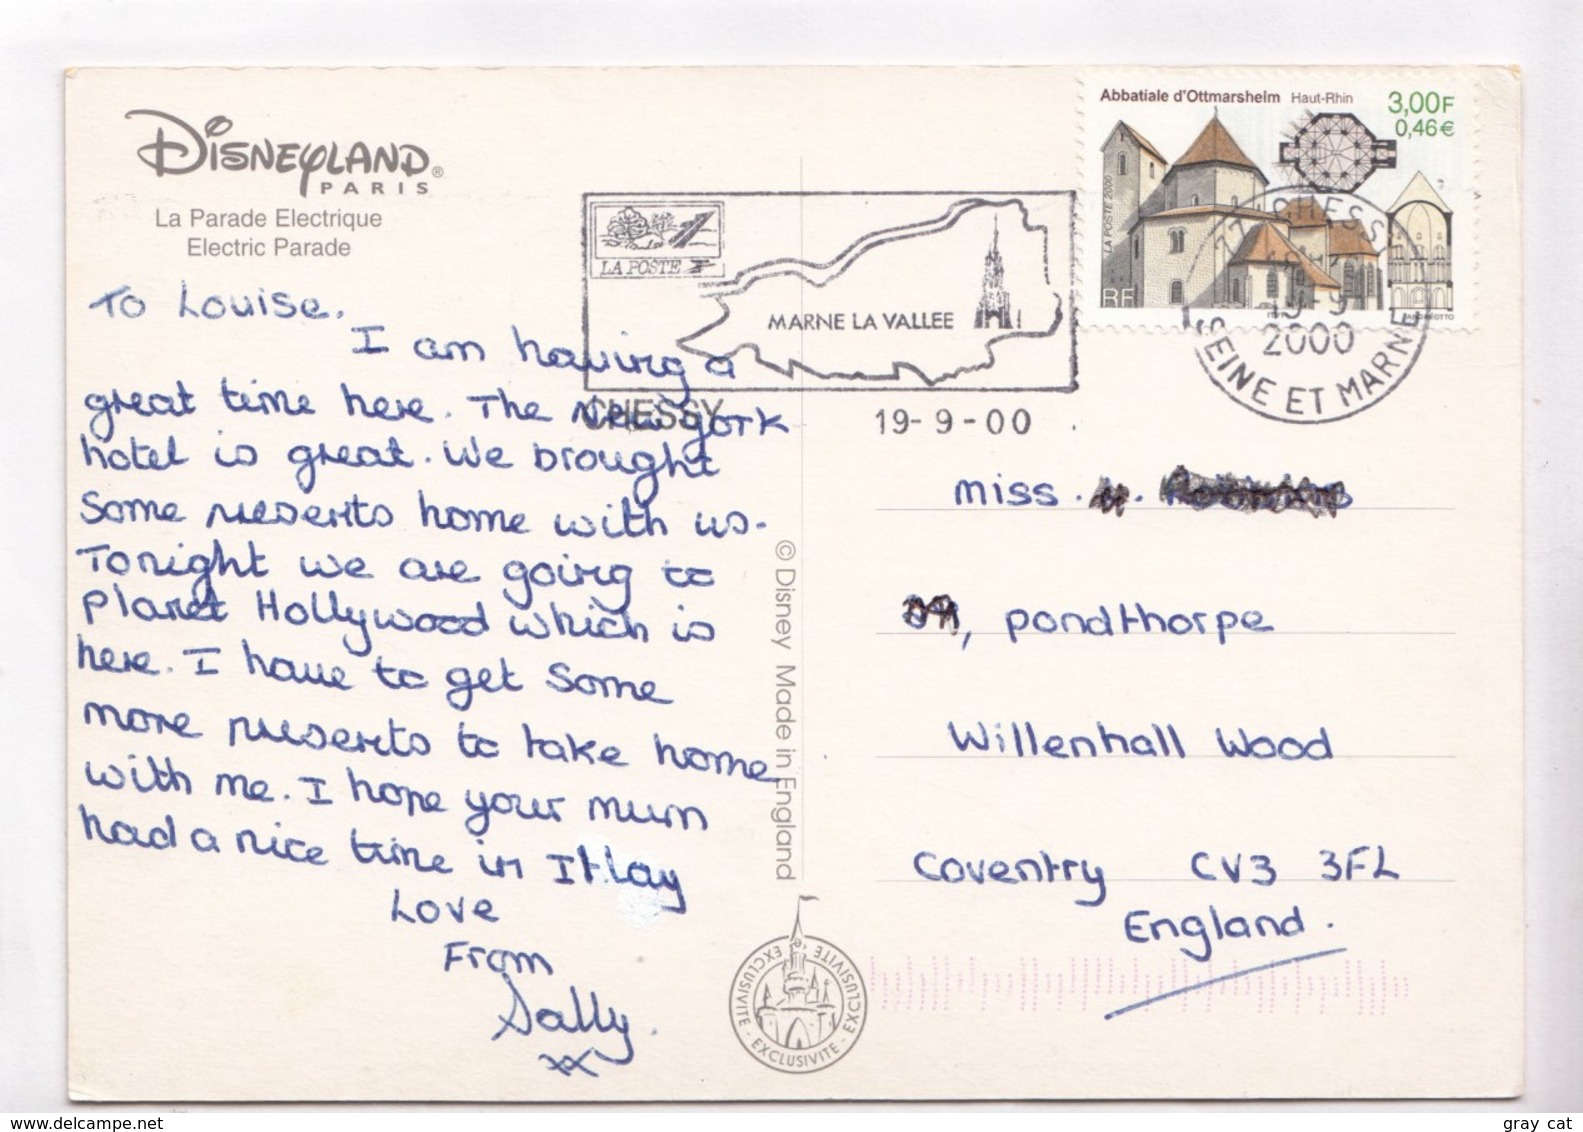 DISNEYLAND®
PARIS
La Parade Electrique
Electric Parade
To Louise.
I am having a
great time here. The New York
hotel is great. We brought
some presents home with us.
Tonight we are going to
Planet Hollywood which is
here. I have to get some
more presents to take home
with me. I hope your mum
had a nice time in Itlay
Love
From
Sally.
xx
© Disney Made in England
EXCLUSIVITE - EXCLUSIVITE - EXCLUSIVITE
LA POSTE
MARNE LA VALLEE
CHESSY
19-9-00
Abbatiale d'Ottmarsheim Haut-Rhin
3,00F
0,46€
LA POSTE 2000
RF
77 CHESSY
19-9
2000
SEINE ET MARNE
miss.
, pondthorpe
Willenhall Wood
Coventry CV3 3FL
England.
www.delcampe.net
gray cat